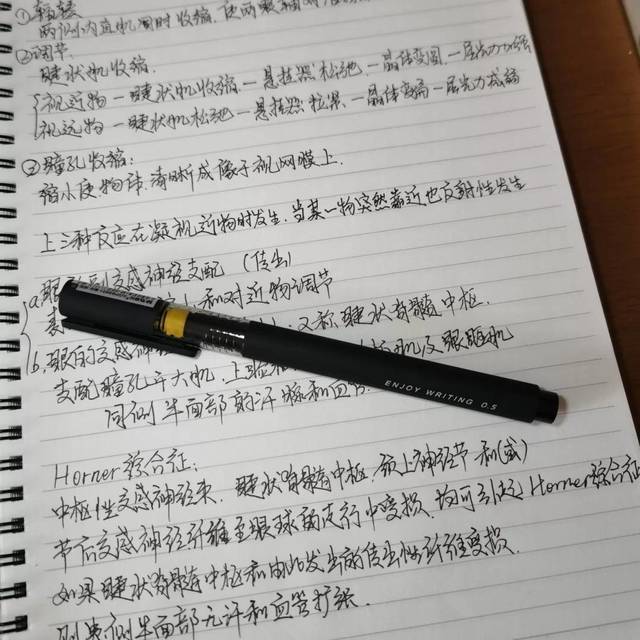 ①辐辏
两侧内直肌同时收缩,使两眼
②调节
睫状肌收缩.
视近物—睫状肌收缩—悬挂器松弛—晶体变圆—屈光力加强
视远物—睫状肌松弛—悬挂器拉紧—晶体变扁—屈光力减弱
③瞳孔收缩:
缩小使物体清晰成像于视网膜上.
上三种反应在凝视近物时发生.当某一物突然靠近也反射性发生
a.眼 副交感神经支配 (传出)
和对近物调节
b.眼的交感神经 又称睫状脊髓中枢.
支配瞳孔开大肌.上睑 肌及眼眶肌
同侧半面部的汗腺和血
ENJOY WRITING 0.5
Horner综合征:
中枢性交感神经束.睫状脊髓中枢.颈上神经节和(或)
节后交感神经纤维至眼球的走行中受损.均可引起Horner综合征
如果睫状脊髓中枢和由此发生的传出性纤维受损.
则患侧半面部无汗和血管扩张.